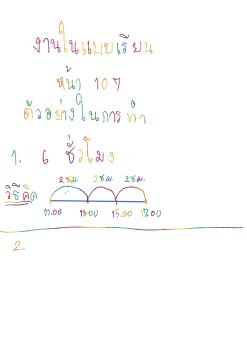 งานในแบบเรียน
หน้า 107
ตัวอย่างในการทำ
1. 6 ชั่วโมง
วิธีคิด 2 ชม. 2 ชม. 2 ชม.
11.00 13.00 15.00 17.00
2.